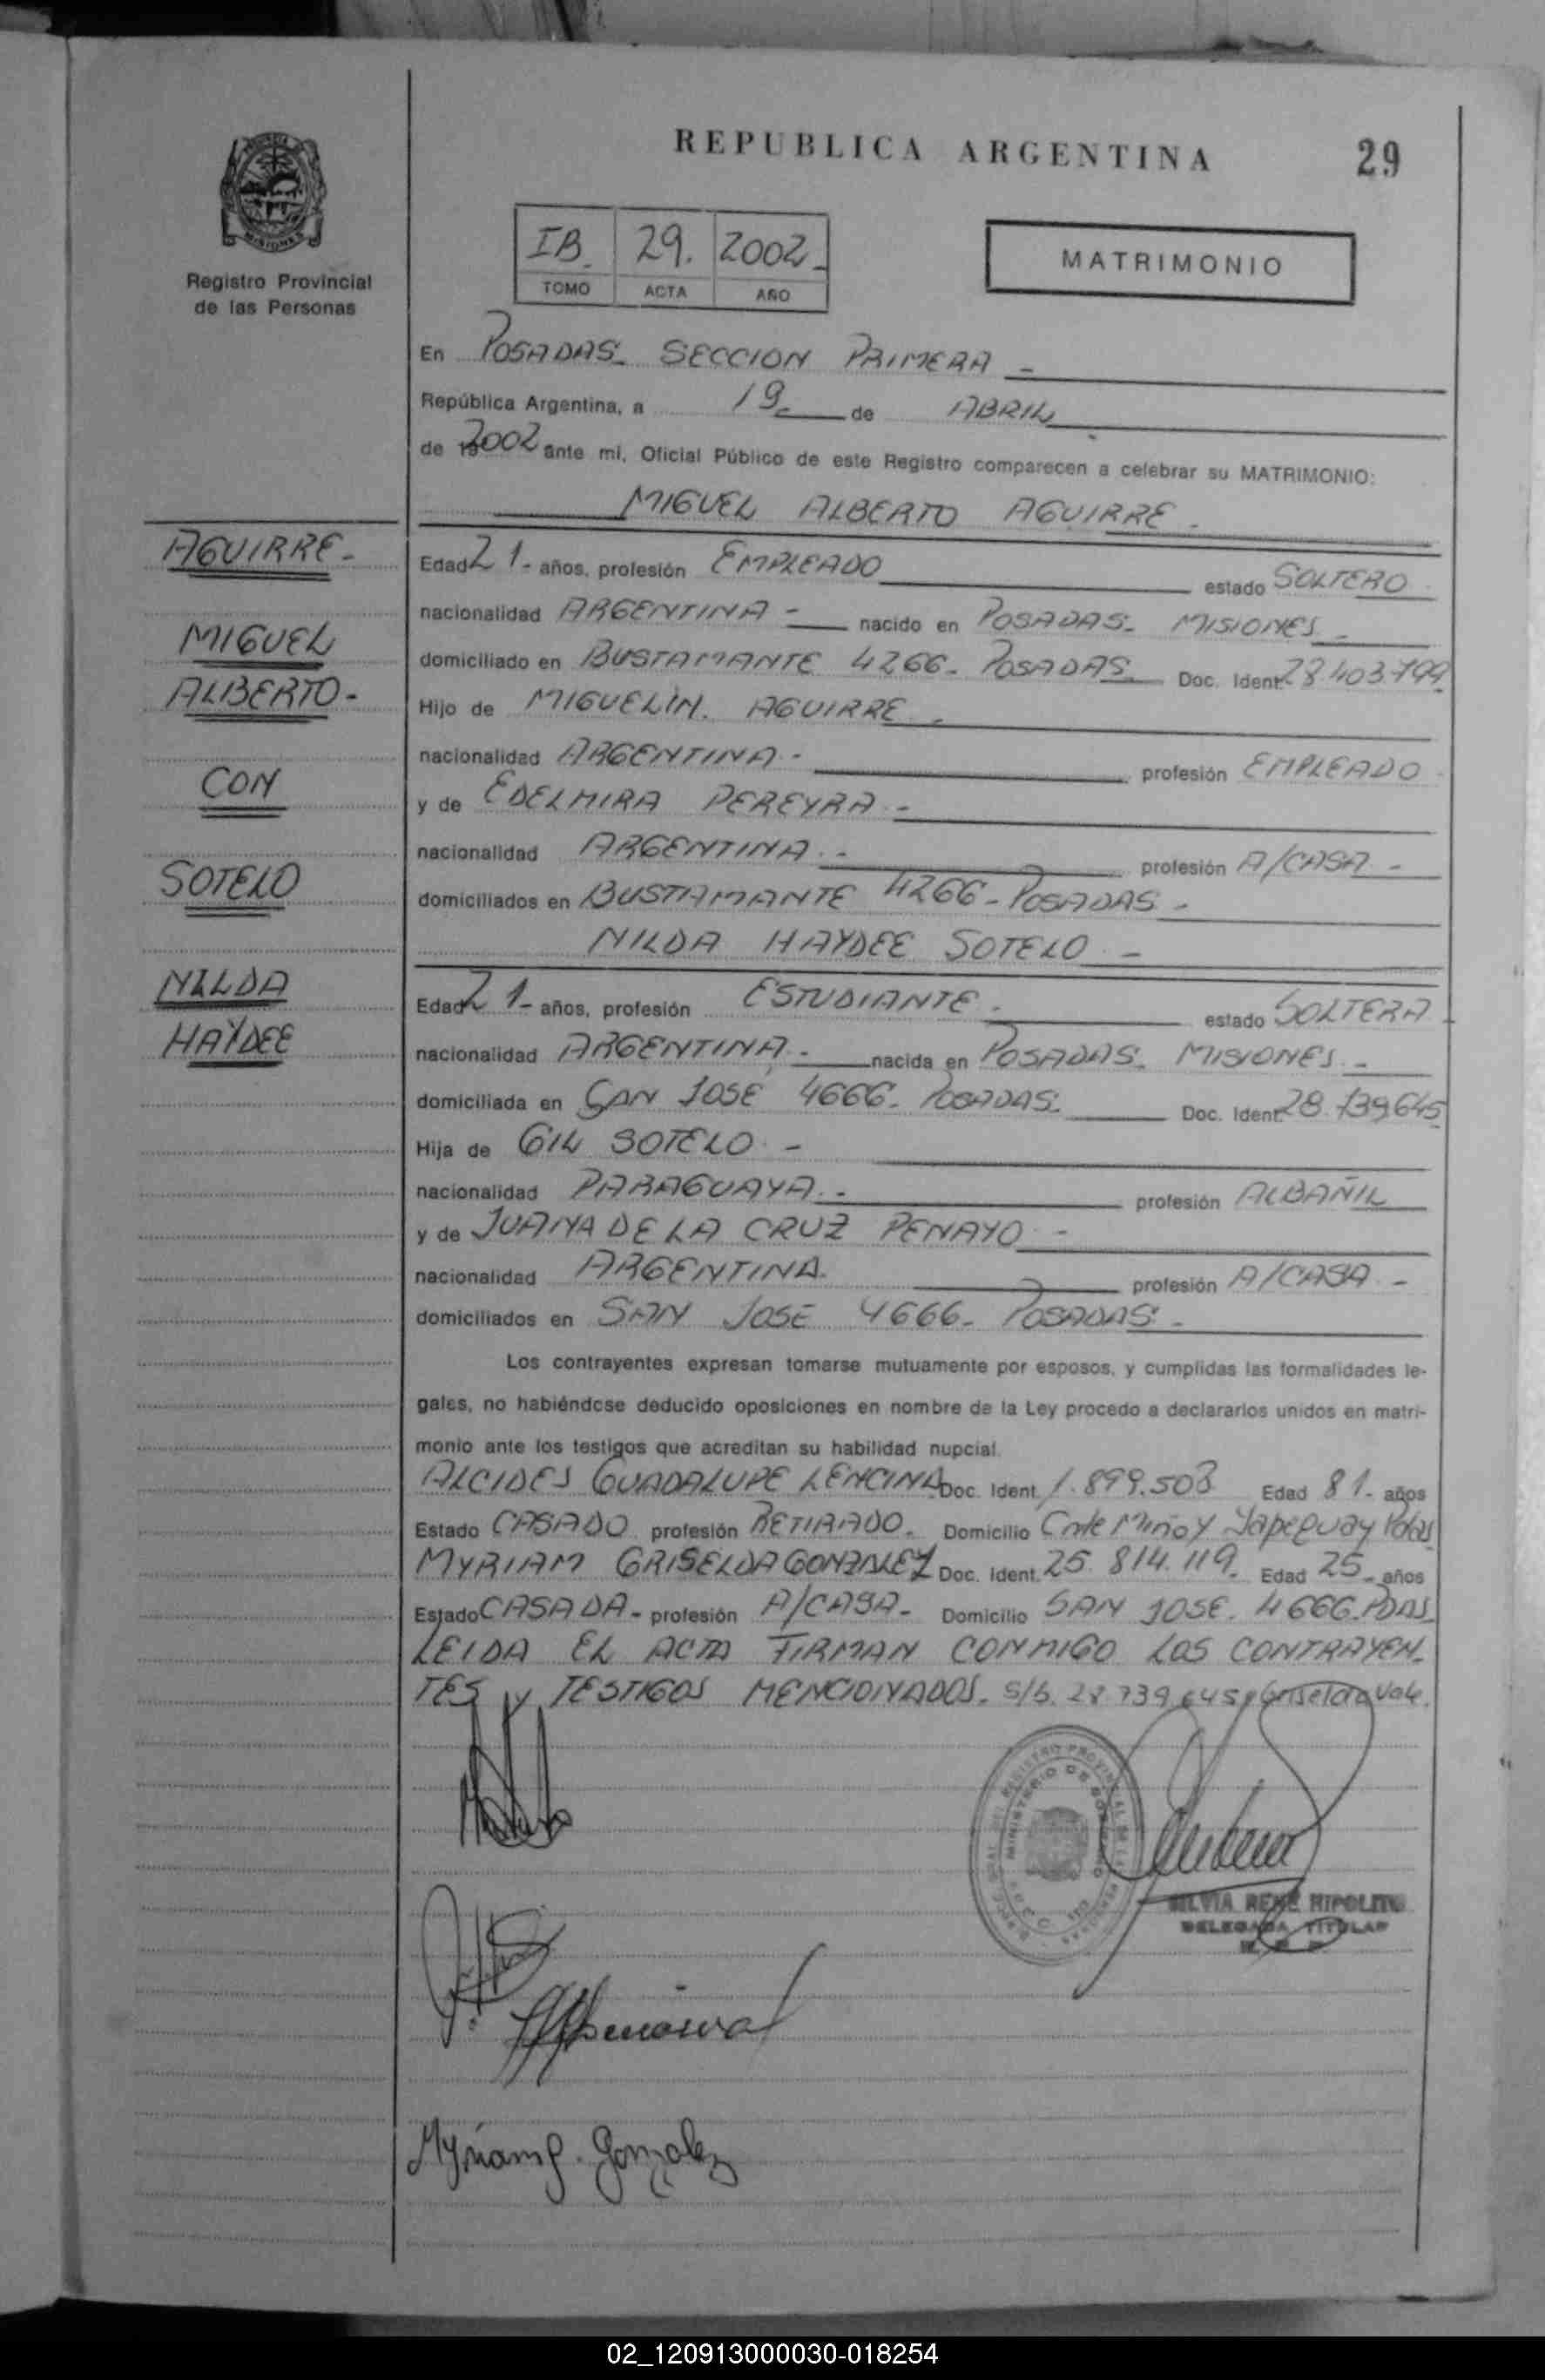 REPUBLICA ARGENTINA
29
MISIONES
Registro Provincial
de las Personas
IB. 29. 2002-
TOMO ACTA AÑO
MATRIMONIO
En POSADAS- SECCION PRIMERA -
República Argentina, a 19- de ABRIL
de 2002 ante mi, Oficial Público de este Registro comparecen a celebrar su MATRIMONIO:
MIGUEL ALBERTO AGUIRRE -
AGUIRRE-
MIGUEL
ALBERTO-
CON
SOTELO
NILDA
HAYDEE
Edad 21- años, profesión EMPLEADO estado SOLTERO
nacionalidad ARGENTINA - nacido en POSADAS- MISIONES -
domiciliado en BUSTAMANTE 4266- POSADAS- Doc. Ident.
Hijo de MIGUELIN. AGUIRRE -
nacionalidad ARGENTINA - profesión EMPLEADO
y de EDELMIRA PEREYRA -
nacionalidad ARGENTINA - profesión A/CASA -
domiciliados en BUSTAMANTE 4266- POSADAS -
NILDA HAYDEE SOTELO -
Edad 21- años, profesión ESTUDIANTE - estado SOLTERA
nacionalidad ARGENTINA - nacida en POSADAS- MISIONES -
domiciliada en SAN JOSE 4666- POSADAS- Doc. Ident. 28.739.645
Hija de GIL SOTELO -
nacionalidad PARAGUAYA - profesión ALBAÑIL
y de JUANA DE LA CRUZ PENAYO -
nacionalidad ARGENTINA. profesión A/CASA -
domiciliados en SAN JOSE 4666- POSADAS -
Los contrayentes expresan tomarse mutuamente por esposos, y cumplidas las formalidades le-
gales, no habiéndose deducido oposiciones en nombre de la Ley procedo a declararlos unidos en matri-
monio ante los testigos que acreditan su habilidad nupcial.
ALCIDES GUADALUPE LENCINA Doc. Ident. 1.899.503 Edad 81- años
Estado CASADO profesión RETIRADO. Domicilio Cnte Miño y Yapeyuay Pdas
MYRIAM GRISELDA GONZALEZ Doc. Ident. 25.814.119. Edad 25- años
Estado CASADA- profesión A/CASA- Domicilio SAN JOSE. 4666. PDAS
LEIDA EL ACTA FIRMAN CONMIGO LOS CONTRAYEN-
TES y TESTIGOS MENCIONADOS. s/b. 28.739.645 y Griselda Vale.
SILVIA RENE RIPOLITO
DELEGADA TITULAR
Myriam g. gonzalez
02_120913000030-018254